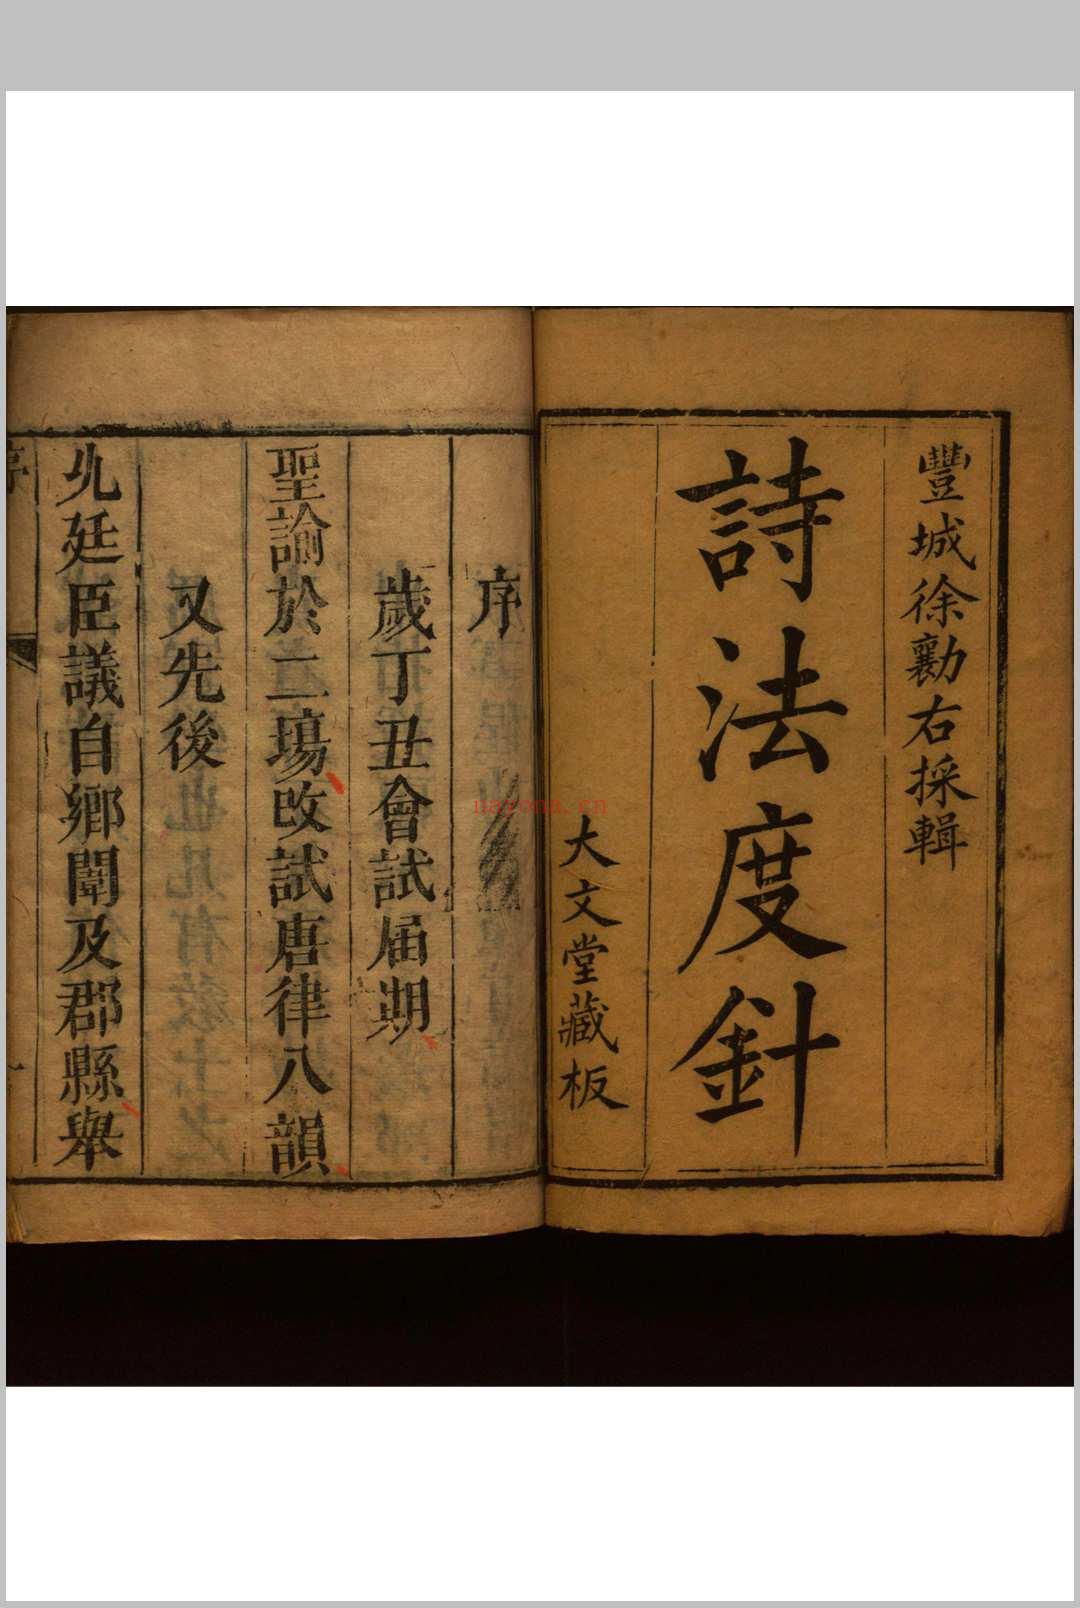 豐城徐勷右採輯
詩法度針
大文堂藏板
序
歲丁丑會試屆期
聖諭於二塲改試唐律八韻
又先後
允廷臣議自鄉闈及郡縣舉
序
nayona.cn